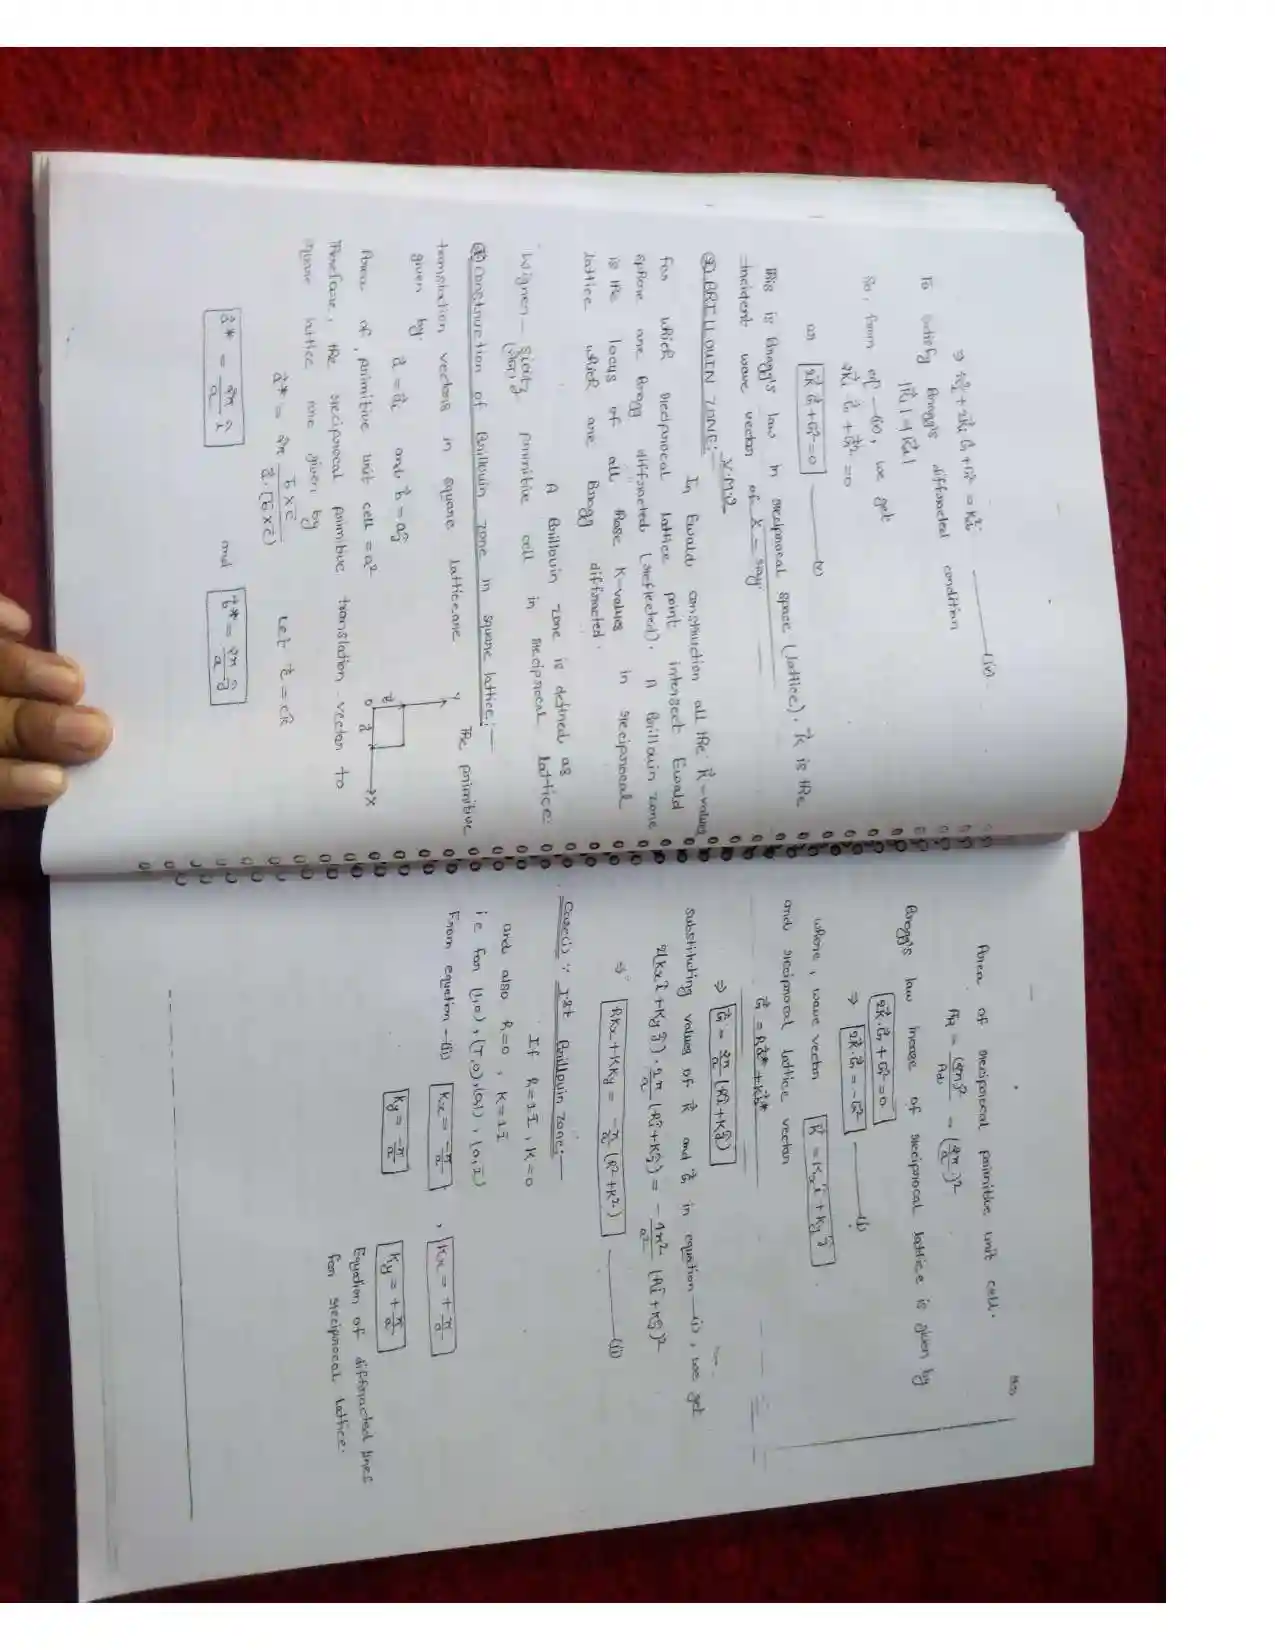 ⇒ k₁² + 2k⃗₁.G⃗ + G² = k₂² ——(iv)
To satisfy Bragg's diffracted condition
|k⃗₁| = |k⃗₂|
So, from eqⁿ —(iv), we get
2k⃗₁.G⃗ + G² = 0
or 2k⃗.G⃗ + G² = 0 ——(v)
This is Bragg's law in reciprocal space (lattice). k⃗ is the
incident wave vector of X-ray.
V.M.2
BRILLOUIN ZONE:—
In Ewald construction all the k⃗-values
for which reciprocal lattice point intersect Ewald
sphere are Bragg diffracted (reflected). A Brillouin zone
is the locus of all those K-values in reciprocal
lattice which are Bragg diffracted.
A Brillouin zone is defined as
Wigner — Seitz primitive cell in reciprocal lattice.
Construction of Brillouin zone in square lattice:—
The primitive
translation vectors in square lattice are
given by.
a⃗ = aî and b⃗ = aĵ
Y
O
X
Area of primitive unit cell = a²
Therefore, the reciprocal primitive translation vector to
square lattice are given by
a⃗* = 2π (b⃗ × c⃗) / (a⃗.[b⃗ × c⃗]) Let c⃗ = ck̂
a⃗* = 2π/a î and b⃗* = 2π/a ĵ
Area of reciprocal primitive unit cell.
A_R = (2π)²/A_D = (2π/a)²
Bragg's law in case of reciprocal lattice is given by
2k⃗.G⃗ + G² = 0
⇒ 2k⃗.G⃗ = -G² ——(i)
where, wave vector k⃗ = Kₓî + Kyĵ
and reciprocal lattice vector
G⃗ = ha⃗* + kb⃗*
⇒ G⃗ = 2π/a (hî + kĵ)
substituting values of k⃗ and G⃗ in equation —(i), we get
2(Kxî + Kyĵ). 2π/a (hî + kĵ) = - 4π²/a² (hî + kĵ)²
⇒ hKx + kKy = -π/a (h² + k²) ——(ii)
Case(i) :- Ist Brillouin zone:—
If h = ±1, k = 0
and also h = 0, k = ±1
i.e for (1,0), (1̄,0), (0,1), (0,1̄)
From equation —(ii)
Kx = -π/a , Kx = +π/a
Ky = -π/a Ky = +π/a
Equation of diffracted lines
for reciprocal lattice.